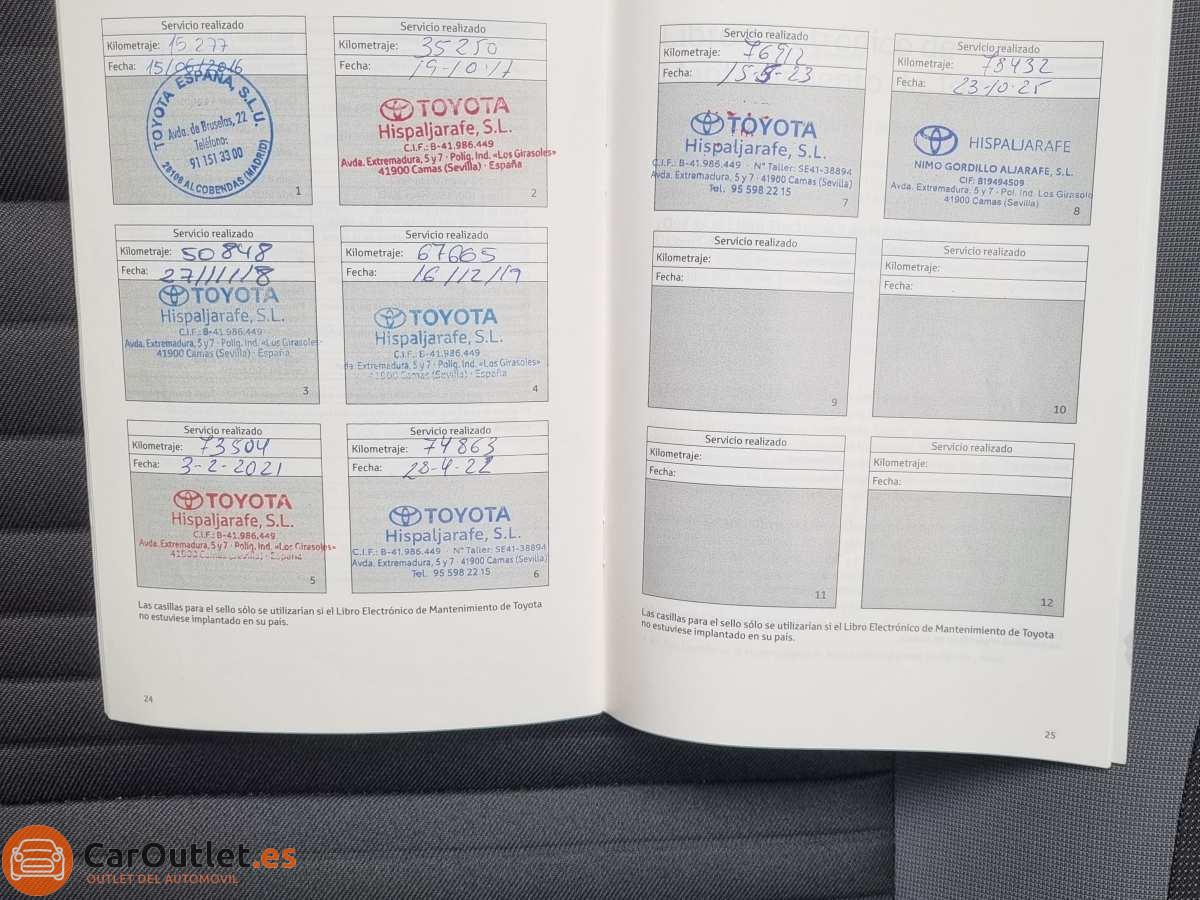 Servicio realizado
Kilometraje: 15 277
Fecha: 15/06/2016
TOYOTA ESPAÑA, S.L.U.
Avda. de Bruselas, 22
Teléfono:
91 151 33 00
28108 ALCOBENDAS (MADRID)
1
Servicio realizado
Kilometraje: 35250
Fecha: 19-10-17
TOYOTA
Hispaljarafe, S.L.
C.I.F.: B-41.986.449
Avda. Extremadura, 5 y 7 · Políg. Ind. «Los Girasoles»
41900 Camas (Sevilla) · España
2
Servicio realizado
Kilometraje: 50848
Fecha: 27/11/18
TOYOTA
Hispaljarafe, S.L.
C.I.F.: B-41.986.449
Avda. Extremadura, 5 y 7 · Políg. Ind. «Los Girasoles»
41900 Camas (Sevilla) · España
3
Servicio realizado
Kilometraje: 67665
Fecha: 16/12/19
TOYOTA
Hispaljarafe, S.L.
C.I.F.: B-41.986.449
da. Extremadura, 5 y 7 · Políg. Ind. «Los Girasoles»
41900 Camas (Sevilla) · España
4
Servicio realizado
Kilometraje: 73504
Fecha: 3-2-2021
TOYOTA
Hispaljarafe, S.L.
C.I.F.: B-41.986.449
Avda. Extremadura, 5 y 7 · Políg. Ind. «Los Girasoles»
41900 Camas (Sevilla) · España
5
Servicio realizado
Kilometraje: 74863
Fecha: 28-4-22
TOYOTA
Hispaljarafe, S.L.
C.I.F.: B-41.986.449 · Nº Taller: SE41-38894
Avda. Extremadura, 5 y 7 · 41900 Camas (Sevilla)
Tel. 95 598 22 15
6
Las casillas para el sello sólo se utilizarian si el Libro Electrónico de Mantenimiento de Toyota
no estuviese implantado en su país.
24
Servicio realizado
Kilometraje: 76912
Fecha: 15-5-23
TOYOTA
Hispaljarafe, S.L.
C.I.F.: B-41.986.449 · Nº Taller: SE41-38894
Avda. Extremadura, 5 y 7 · 41900 Camas (Sevilla)
Tel. 95 598 22 15
7
Servicio realizado
Kilometraje: 78432
Fecha: 23-10-25
HISPALJARAFE
NIMO GORDILLO ALJARAFE, S.L.
CIF: B19494509
Avda. Extremadura, 5 y 7 - Pol. Ind. Los Girasole
41900 Camas (Sevilla)
8
Servicio realizado
Kilometraje:
Fecha:
9
Servicio realizado
Kilometraje:
Fecha:
10
Servicio realizado
Kilometraje:
Fecha:
11
Servicio realizado
Kilometraje:
Fecha:
12
Las casillas para el sello sólo se utilizarian si el Libro Electrónico de Mantenimiento de Toyota
no estuviese implantado en su país.
25
CarOutlet.es
OUTLET DEL AUTOMOVIL